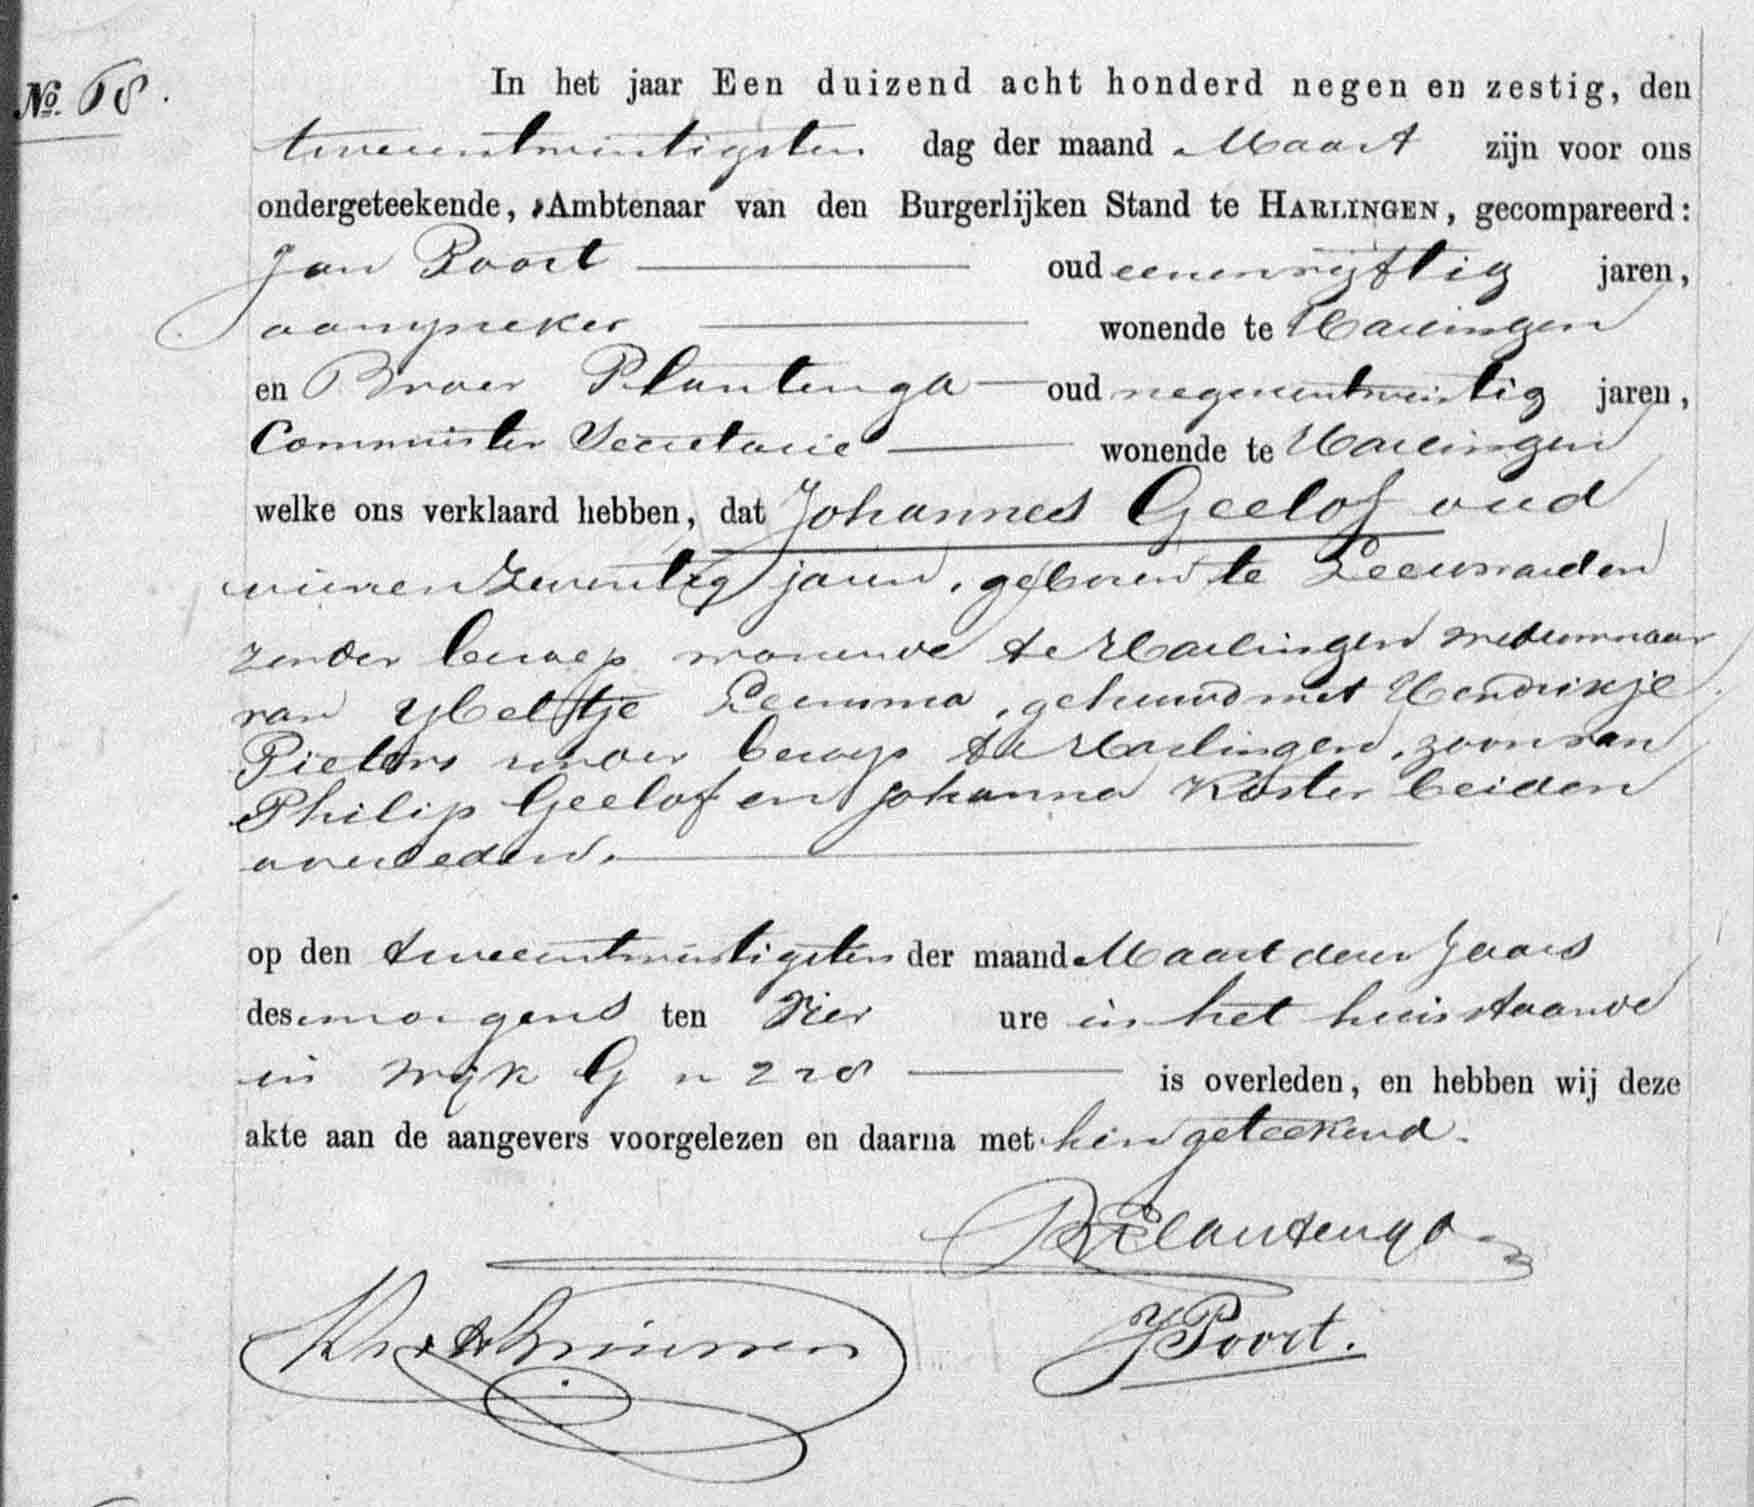 No. 68.
In het jaar Een duizend acht honderd negen en zestig, den
tweeentwintigsten dag der maand Maart zijn voor ons
ondergeteekende, Ambtenaar van den Burgerlijken Stand te HARLINGEN, gecompareerd:
Jan Poort oud eenenvijftig jaren,
aanspreker wonende te Harlingen
en Broer Plantenga oud negenentwintig jaren,
Commies ter Secretarie wonende te Harlingen
welke ons verklaard hebben, dat Johannes Geelof oud
vierenzeventig jaren, geboren te Leeuwarden
zonder beroep wonende te Harlingen weduwnaar
van Ybeltje Leemma, gehuwd met Hendrikje
Pieters zonder beroep te Harlingen, zoon van
Philip Geelof en Johanna Koster beiden
overleden.
op den tweeentwintigsten der maand Maart dezes Jaars
des morgens ten vier ure in het huis staande
in wijk G n 228 is overleden, en hebben wij deze
akte aan de aangevers voorgelezen en daarna met hen geteekend.
BPlantenga
JPoort.